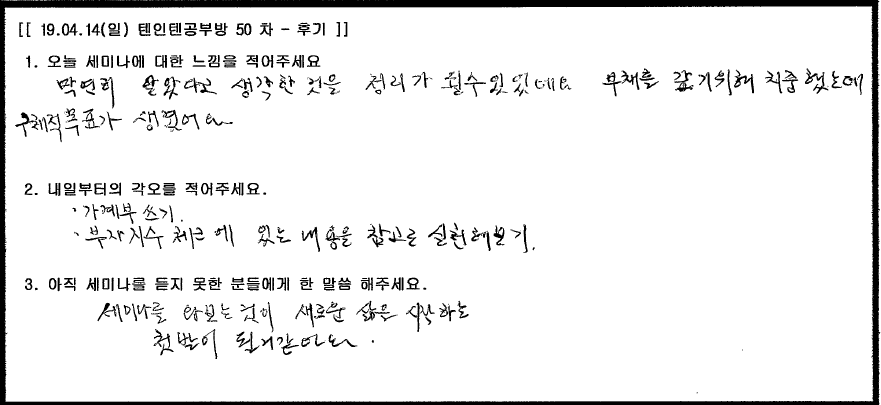 [[ 19.04.14(일) 텐인텐공부방 50 차 - 후기 ]]
1. 오늘 세미나에 대한 느낌을 적어주세요
막연히 알았다고 생각한 것을 정리가 될수있었데요 부채를 갚기위해 치중했는데
구체적목표가 생겼어요
2. 내일부터의 각오를 적어주세요.
·가계부 쓰기.
·부자지수 체크에 있는 내용을 참고로 실천해보기.
3. 아직 세미나를 듣지 못한 분들에게 한 말씀 해주세요.
세미나를 와보는것이 새로운 삶은 시작하는
첫발이 될거같아요.